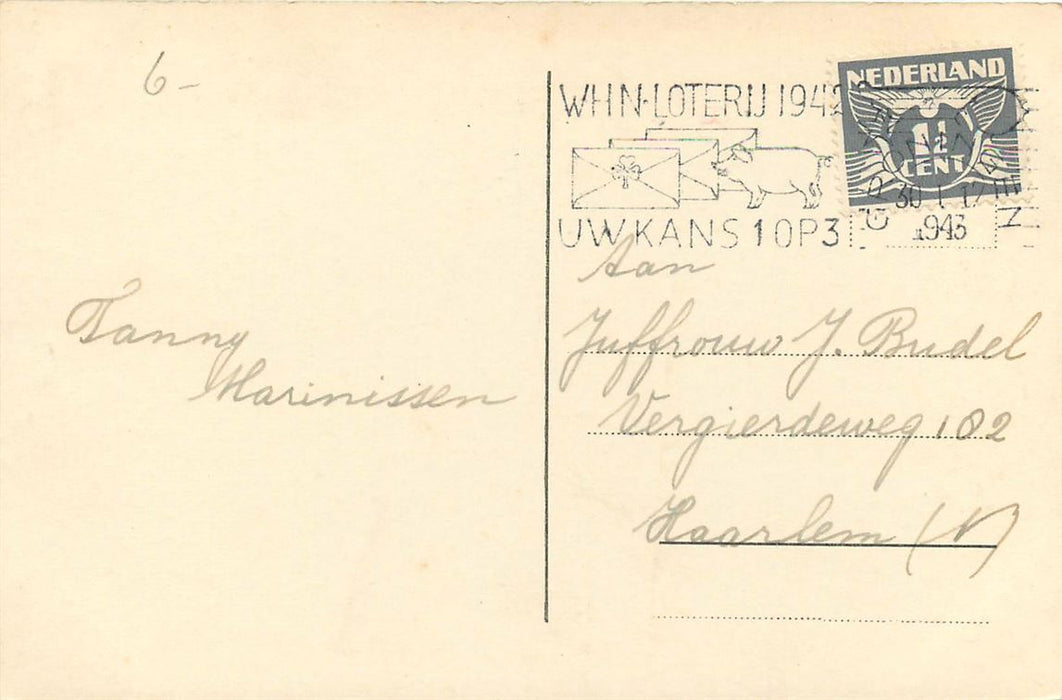 6-
WHN-LOTERIJ 1942
NEDERLAND
1½
CENT
UW KANS 1 OP 3
30 I 17
1943
Aan
Juffrouw J. Budel
Vergierdeweg 182
Haarlem (N)
Fanny
Marinissen